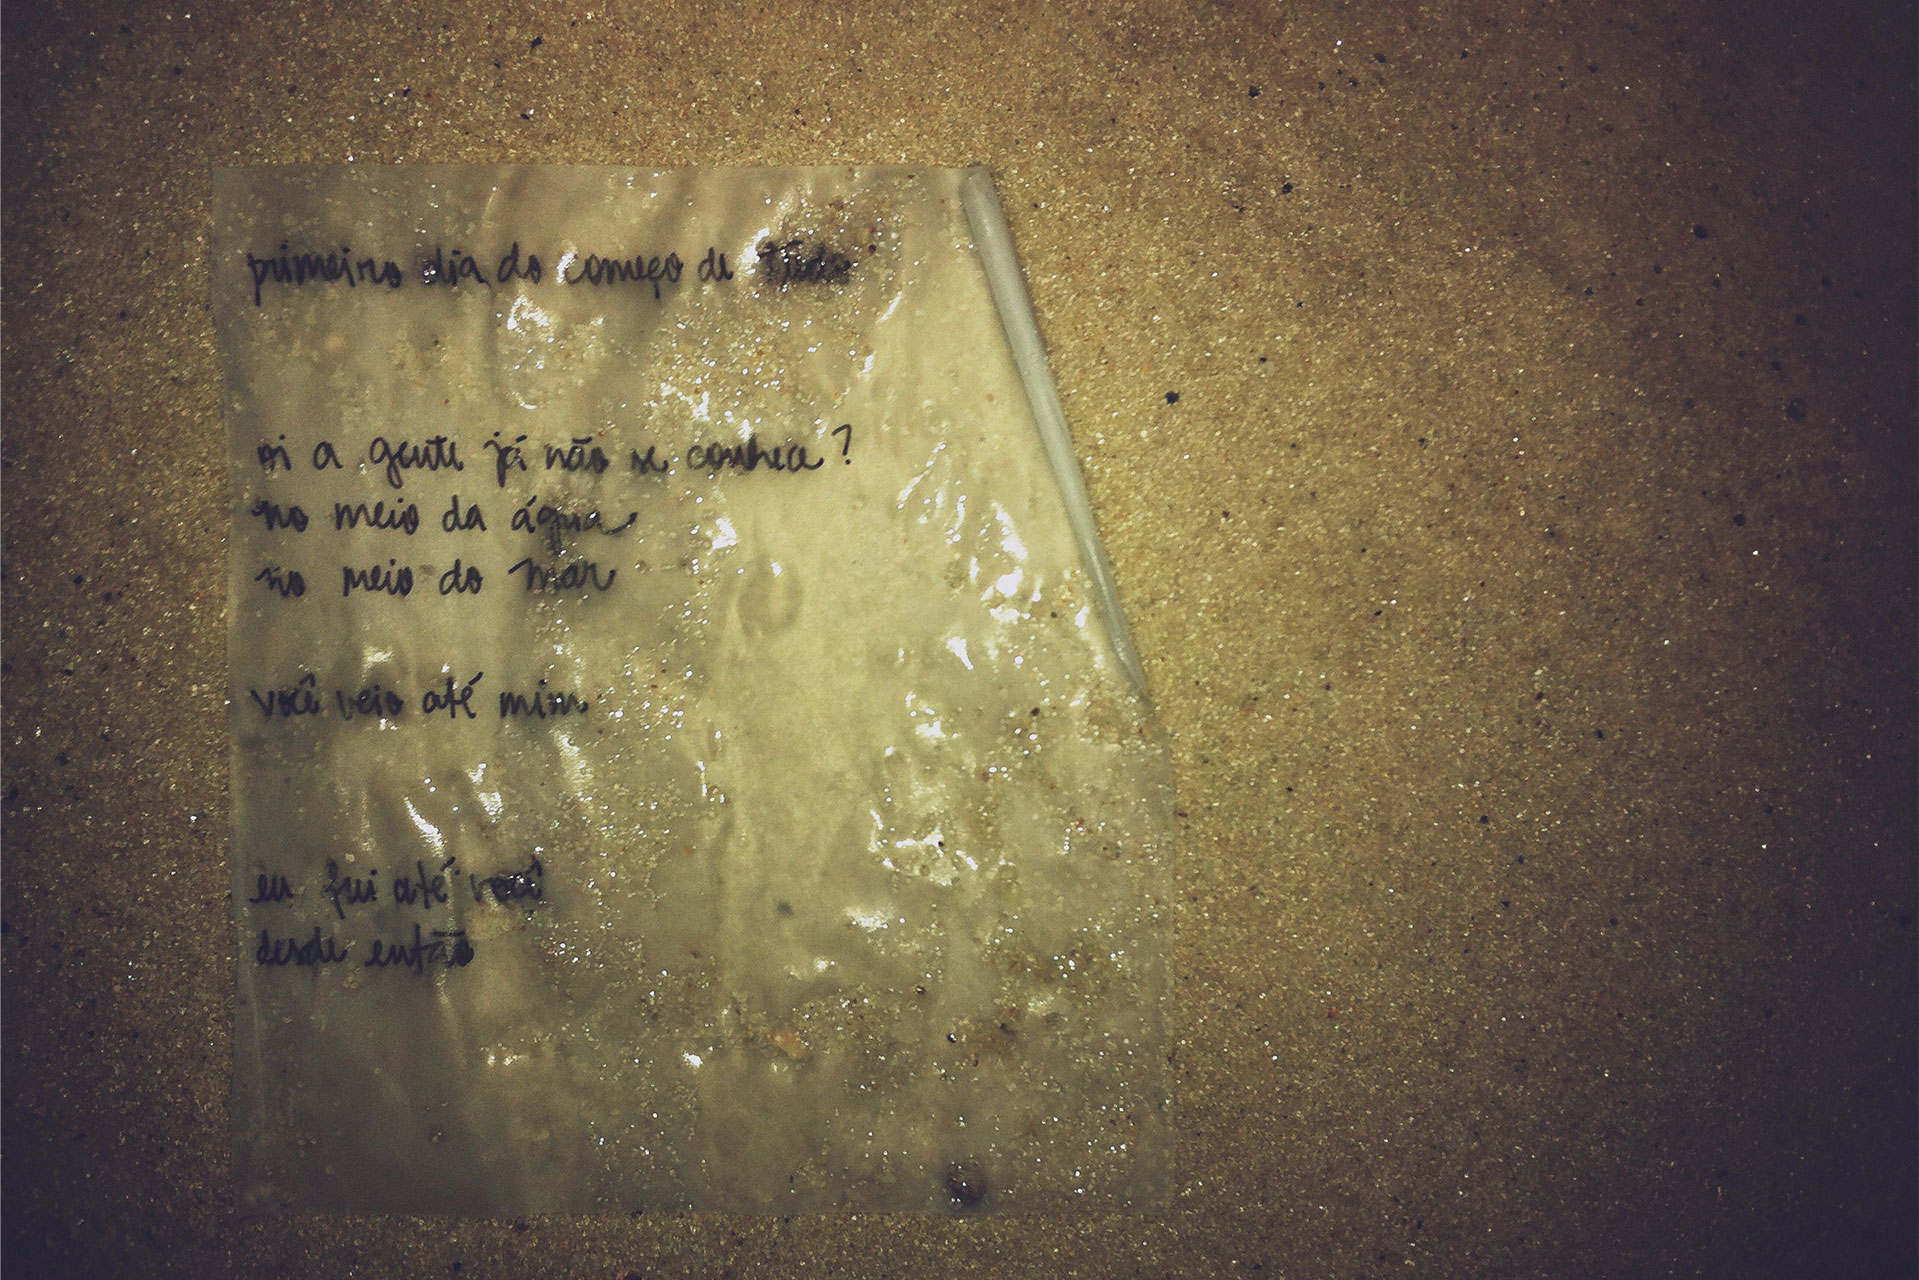 primeiro dia do começo de tudo
oi a gente já não se conhece?
no meio da água
no meio do mar
você veio até mim
eu fui até você
desde então